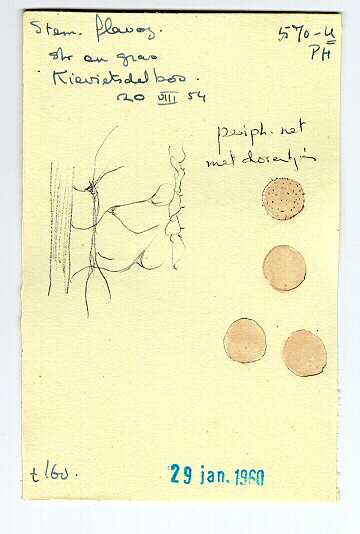 Stem. flavog.
str en gras
Kievietsdelbos.
20 VIII 54
570-U
PH
periph. net
met doorntjes
t 160.
29 jan. 1960